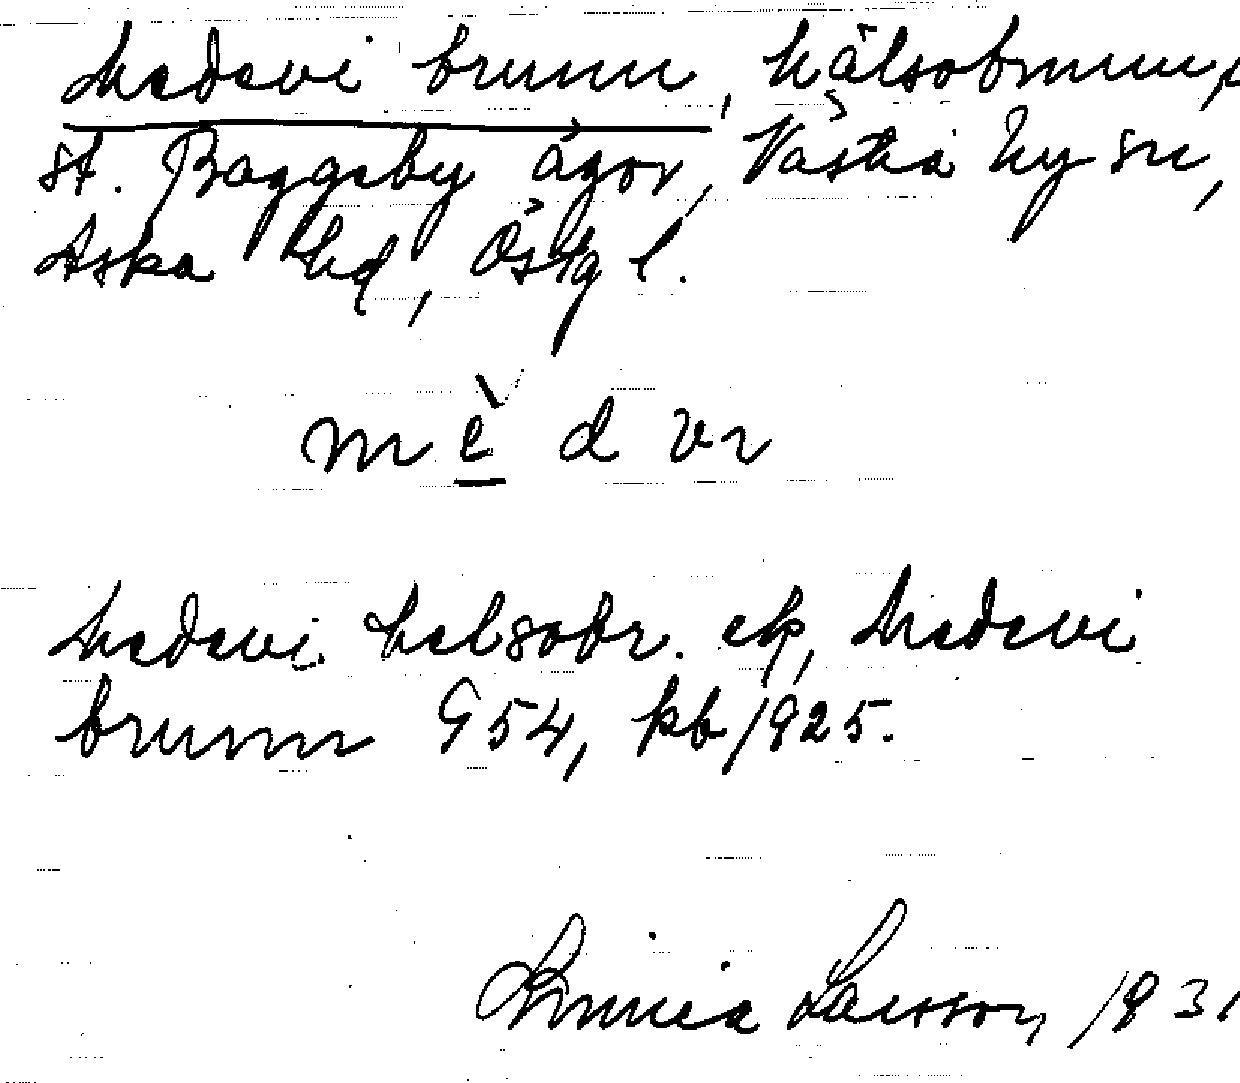 Medevi brunn, hälsobrunn,
st. Baggeby ägor, Västra Ny sn,
Aska hd, Östg l.
mè d vı
Medevi helsobr. ek, Medevi
brunn G54, kb 1925.
Linnea Larsson 1931